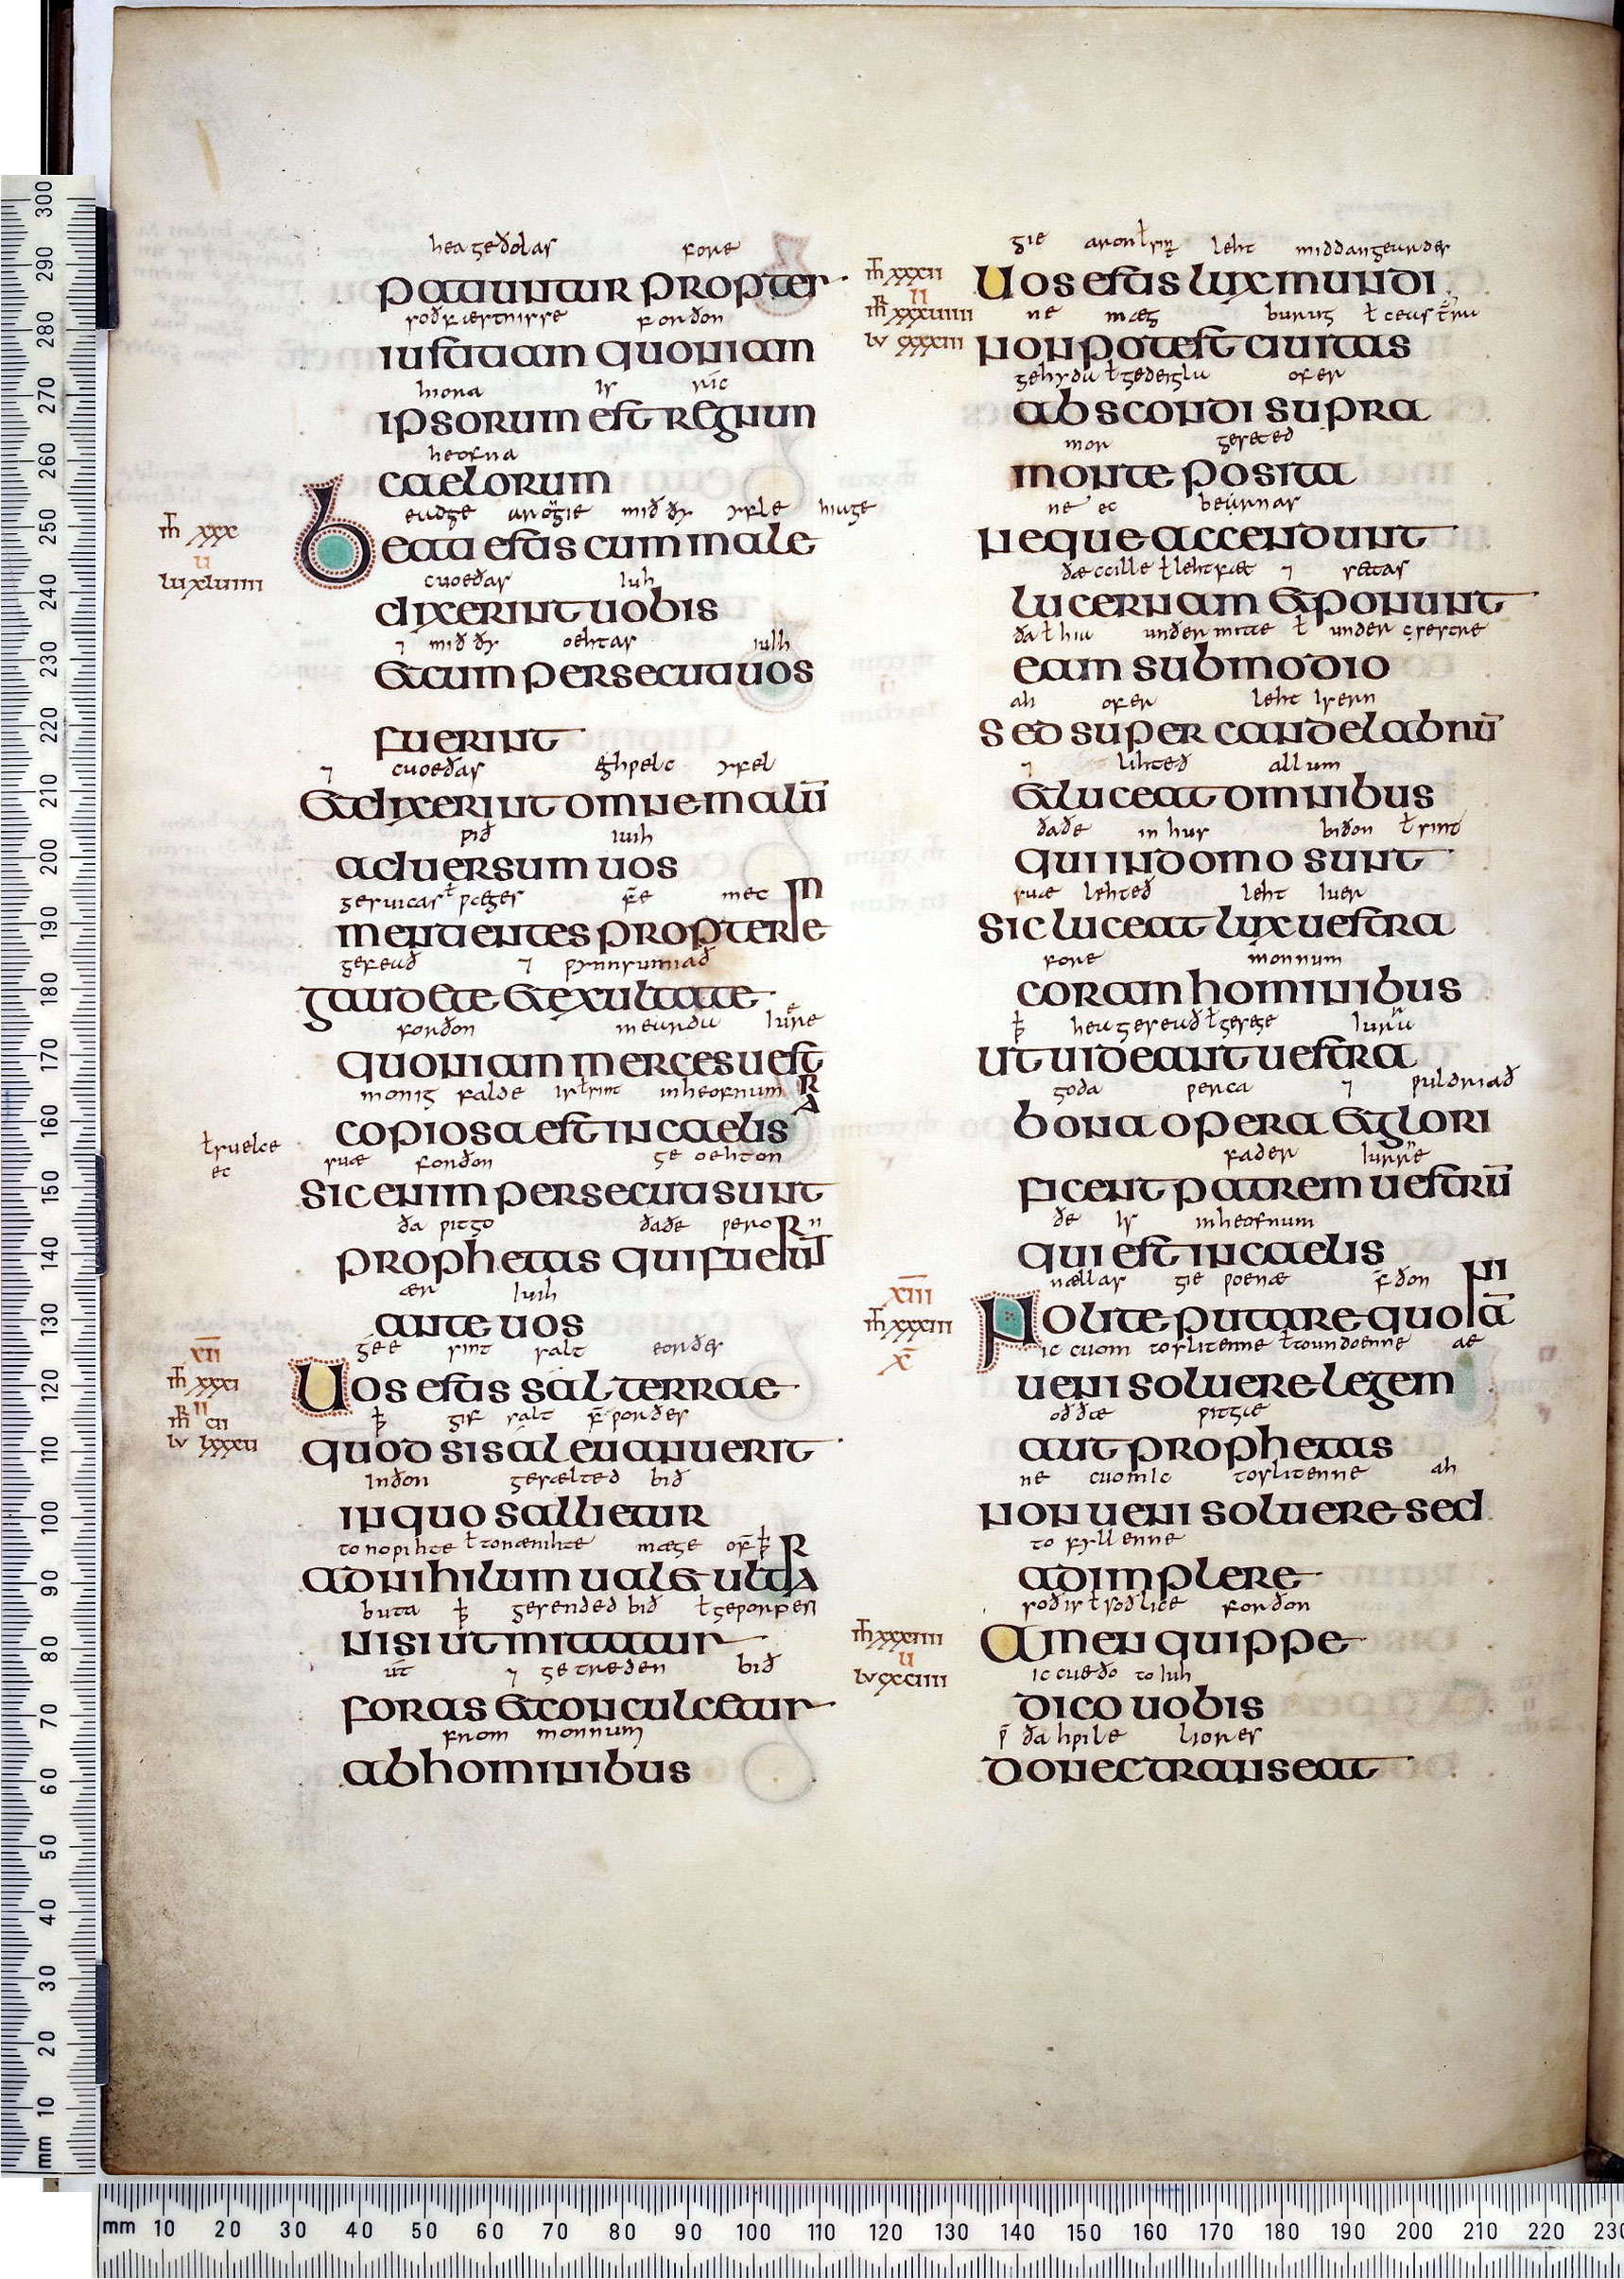 heageðolas fore
patiuntur propter
soðfæstnisse forðon
iustitiam quoniam
hiora is ric
ipsorum est regnun
heofna
caelorum
eadge aro gie mið ðy yfle hiuge
Beati estis cum male
cuoeðas iuh
dixerint uobis
⁊ mið ðy oehtas iuih
et cum persecuti uos
fuerint
⁊ cuoeðas yfel
et dixerint omne malū
wið iuih
aduersum uos
gesuicas ł wæges f̄e mec
mentientes propter me
gefeað ⁊ wynnsumiað
gaudete et exultate
forðon meardu iuere
quoniam merces uestra
monig falde is ł sint in heofnum
copiosa est in caelis
ł suelce
ec
suæ forðon ge oehton
sic enim persecuti sunt
ða witgo ðaðe weron
prophetas qui fuerūt
ær iuih
ante uos
gee sint salt eorðes
Uos estis sal terrae
ꝥ gif salt f̄ worðes
quod si sal euanuerit
in ðon gesælted bið
in quo sallietur
to nowihte ł to nænihte mæge of̄ ꝥ
ad nihilum ualet ultra
buta ꝥ gesended bið ł geworpen
nisi ut mittatur
ūt ⁊ getreden bið
foras et conculcetur
from monnum
ab hominibus
m̄ xxx
u
lu xluiiii
xii
m̄ xxxi
ii
m̄R cii
lu lxxxii
gie aron ł leht middangeardes
Uos estis lux mundi
ne mæg burug ł ceastra
non potest ciuitas
gehyda ł gedeigla ofer
abscondi supra
mor geseted
monte posita
ne ec beornas
neque accendunt
ðæccille ł lehtfæt ⁊ setas
lucernam et ponunt
ða ł hia under mitte ł under
eam sub modio
ah ofer leht isern
sed super candelabrū
⁊ lihteð allum
et luceat omnibus
ðaðe in hus biðon ł sint
qui in domo sunt
suæ lehteð leht iuer
sic luceat lux uestra
fore monnum
coram hominibus
ꝥ hea geseað ł gesege iurra
ut uideant uestra
goda werca ⁊ wuldriað
bona opera et glori
fader iurre
ficent patrem uestrū
ðe is in heofnum
qui est in caelis
nællas gie woenæ f̄ðon
Nolite putare quoniā
ic cuom to slitenne ł to undoenne ae
ueni soluere legem
oððæ witgie
aut prophetas
ne cuom ic to slitenne ah
non ueni soluere sed
to fyllenne
adimplere
soð is ł soðlice forðon
Amen quippe
ic cueðo to iuh
dico uobis
ða hwile liores
donec transeat
m̄ xxxii
ii
m̄R xxxuiiii
lu cxxxiii
xiii
m̄ xxxiii
x
m̄ xxxiiii
u
lu cxciiii